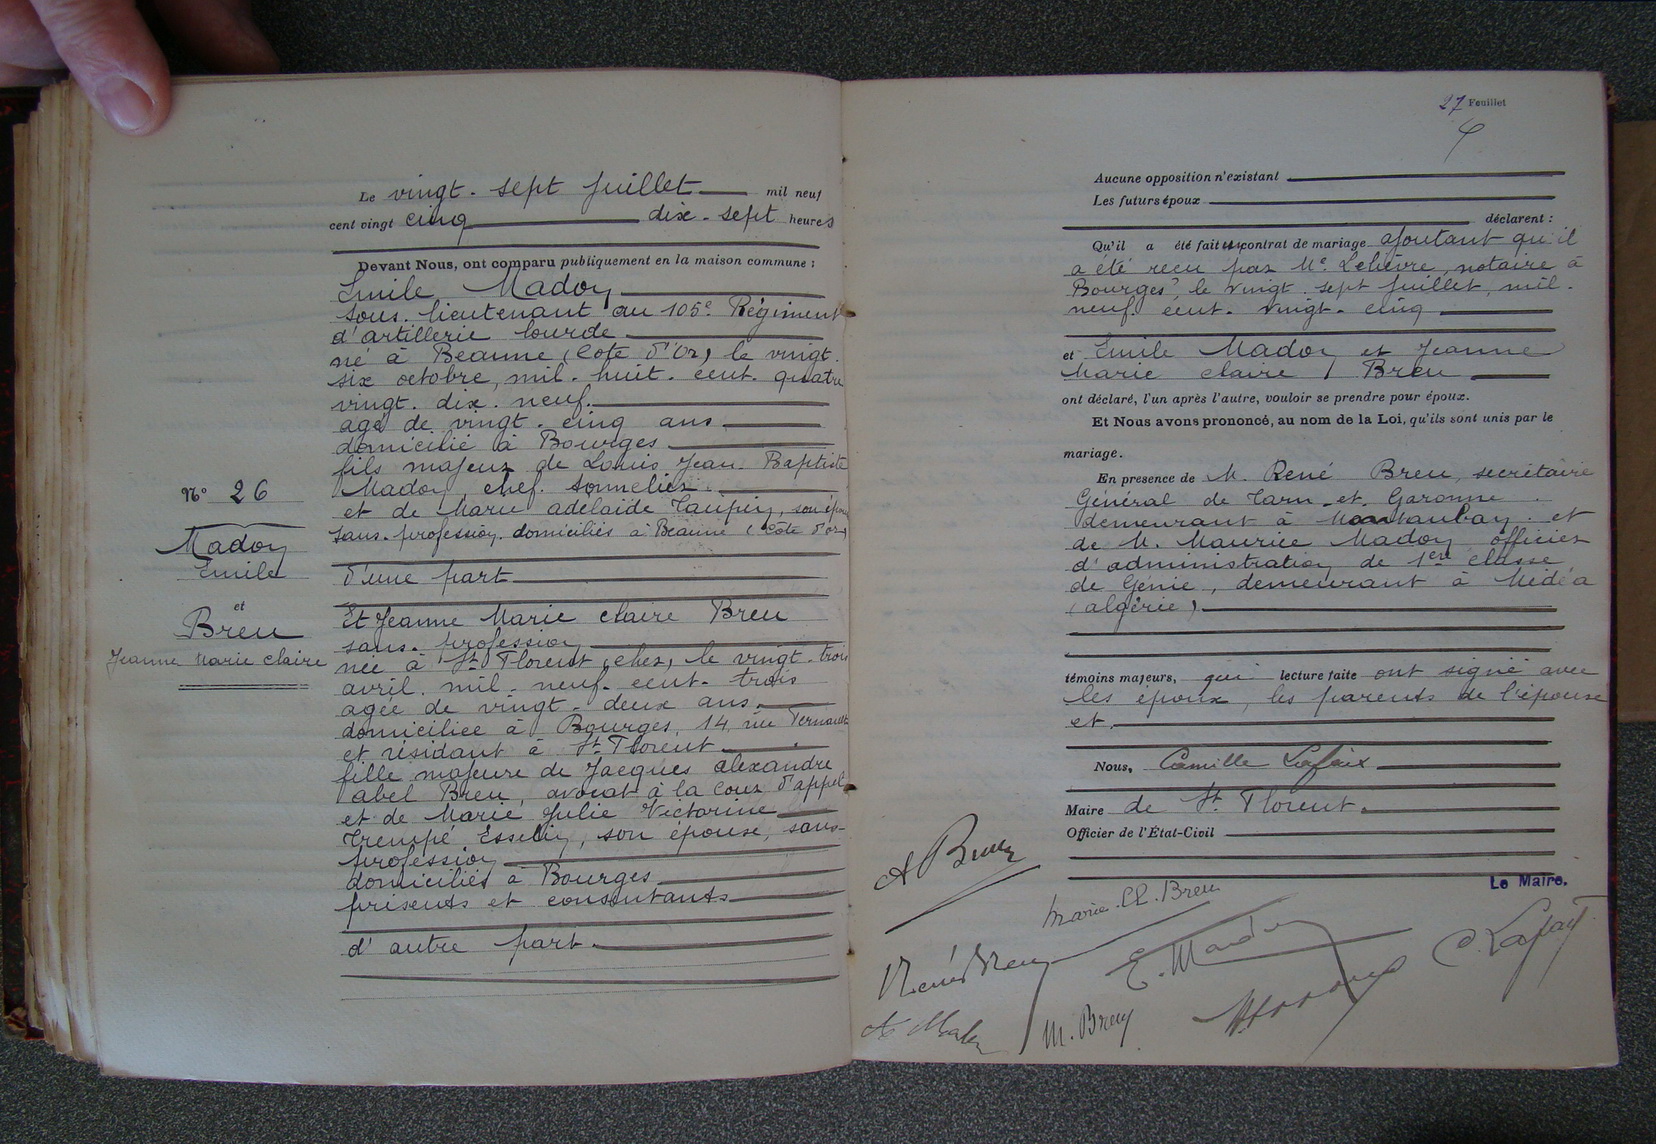 Le vingt. sept juillet mil neuf
cent vingt cinq dix. sept heures
Devant Nous, ont comparu publiquement en la maison commune :
Emile Madoy
sous. lieutenant au 105e Régiment
d'artillerie lourde
né à Beaune (Cote d'Or) le vingt.
six octobre, mil. huit. cent. quatre
vingt. dix. neuf.
agé de vingt. cinq ans
domicilié à Bourges
fils majeur de Louis Jean. Baptiste
Madoy, chef. sommelier.
et de Marie adelaïde Taupin, son épouse
sans. profession. domiciliés à Beaune (Côte d'or)
d'une part
Et Jeanne Marie claire Breu
sans. profession
née à St Florent (cher), le vingt. trois
avril. mil. neuf. cent. trois
agée de vingt. deux ans.
domiciliée à Bourges, 14, rue
et résidant à St Florent
fille majeure de Jacques alexandre
abel Breu, avocat à la Cour d'appel
et de Marie Julie Victorine
Trempé Esselin, son épouse, sans-
profession
domiciliés à Bourges
présents et consentants
d'autre part.
No 26
Madoy
Emile
et
Breu
Jeanne Marie claire
27 Feuillet
Aucune opposition n'existant
Les futurs époux
déclarent :
Qu'il a été fait un contrat de mariage ajoutant qu'il
a été reçu par Me Lelièvre, notaire à
Bourges, le vingt. sept juillet, mil.
neuf. cent. vingt. cinq
et Emile Madoy et Jeanne
Marie claire Breu
ont déclaré, l'un après l'autre, vouloir se prendre pour époux.
Et Nous avons prononcé, au nom de la Loi, qu'ils sont unis par le
mariage.
En presence de M. René Breu, secrétaire
Général de Tarn et Garonne
demeurant à Montauban. et
de M. Maurice Madoy officier
d'administration de 1ere classe
de Génie, demeurant à Médéa
(algérie)
témoins majeurs, qui lecture faite ont signé avec
les époux, les parents de l'épouse
et.
Nous, Camille Lafaix
Maire de St Florent.
Officier de l'État-Civil
Le Maire.
A Breu
Marie. Cl. Breu
René Breu
E. Madoy
C. Lafaix
M. Breu